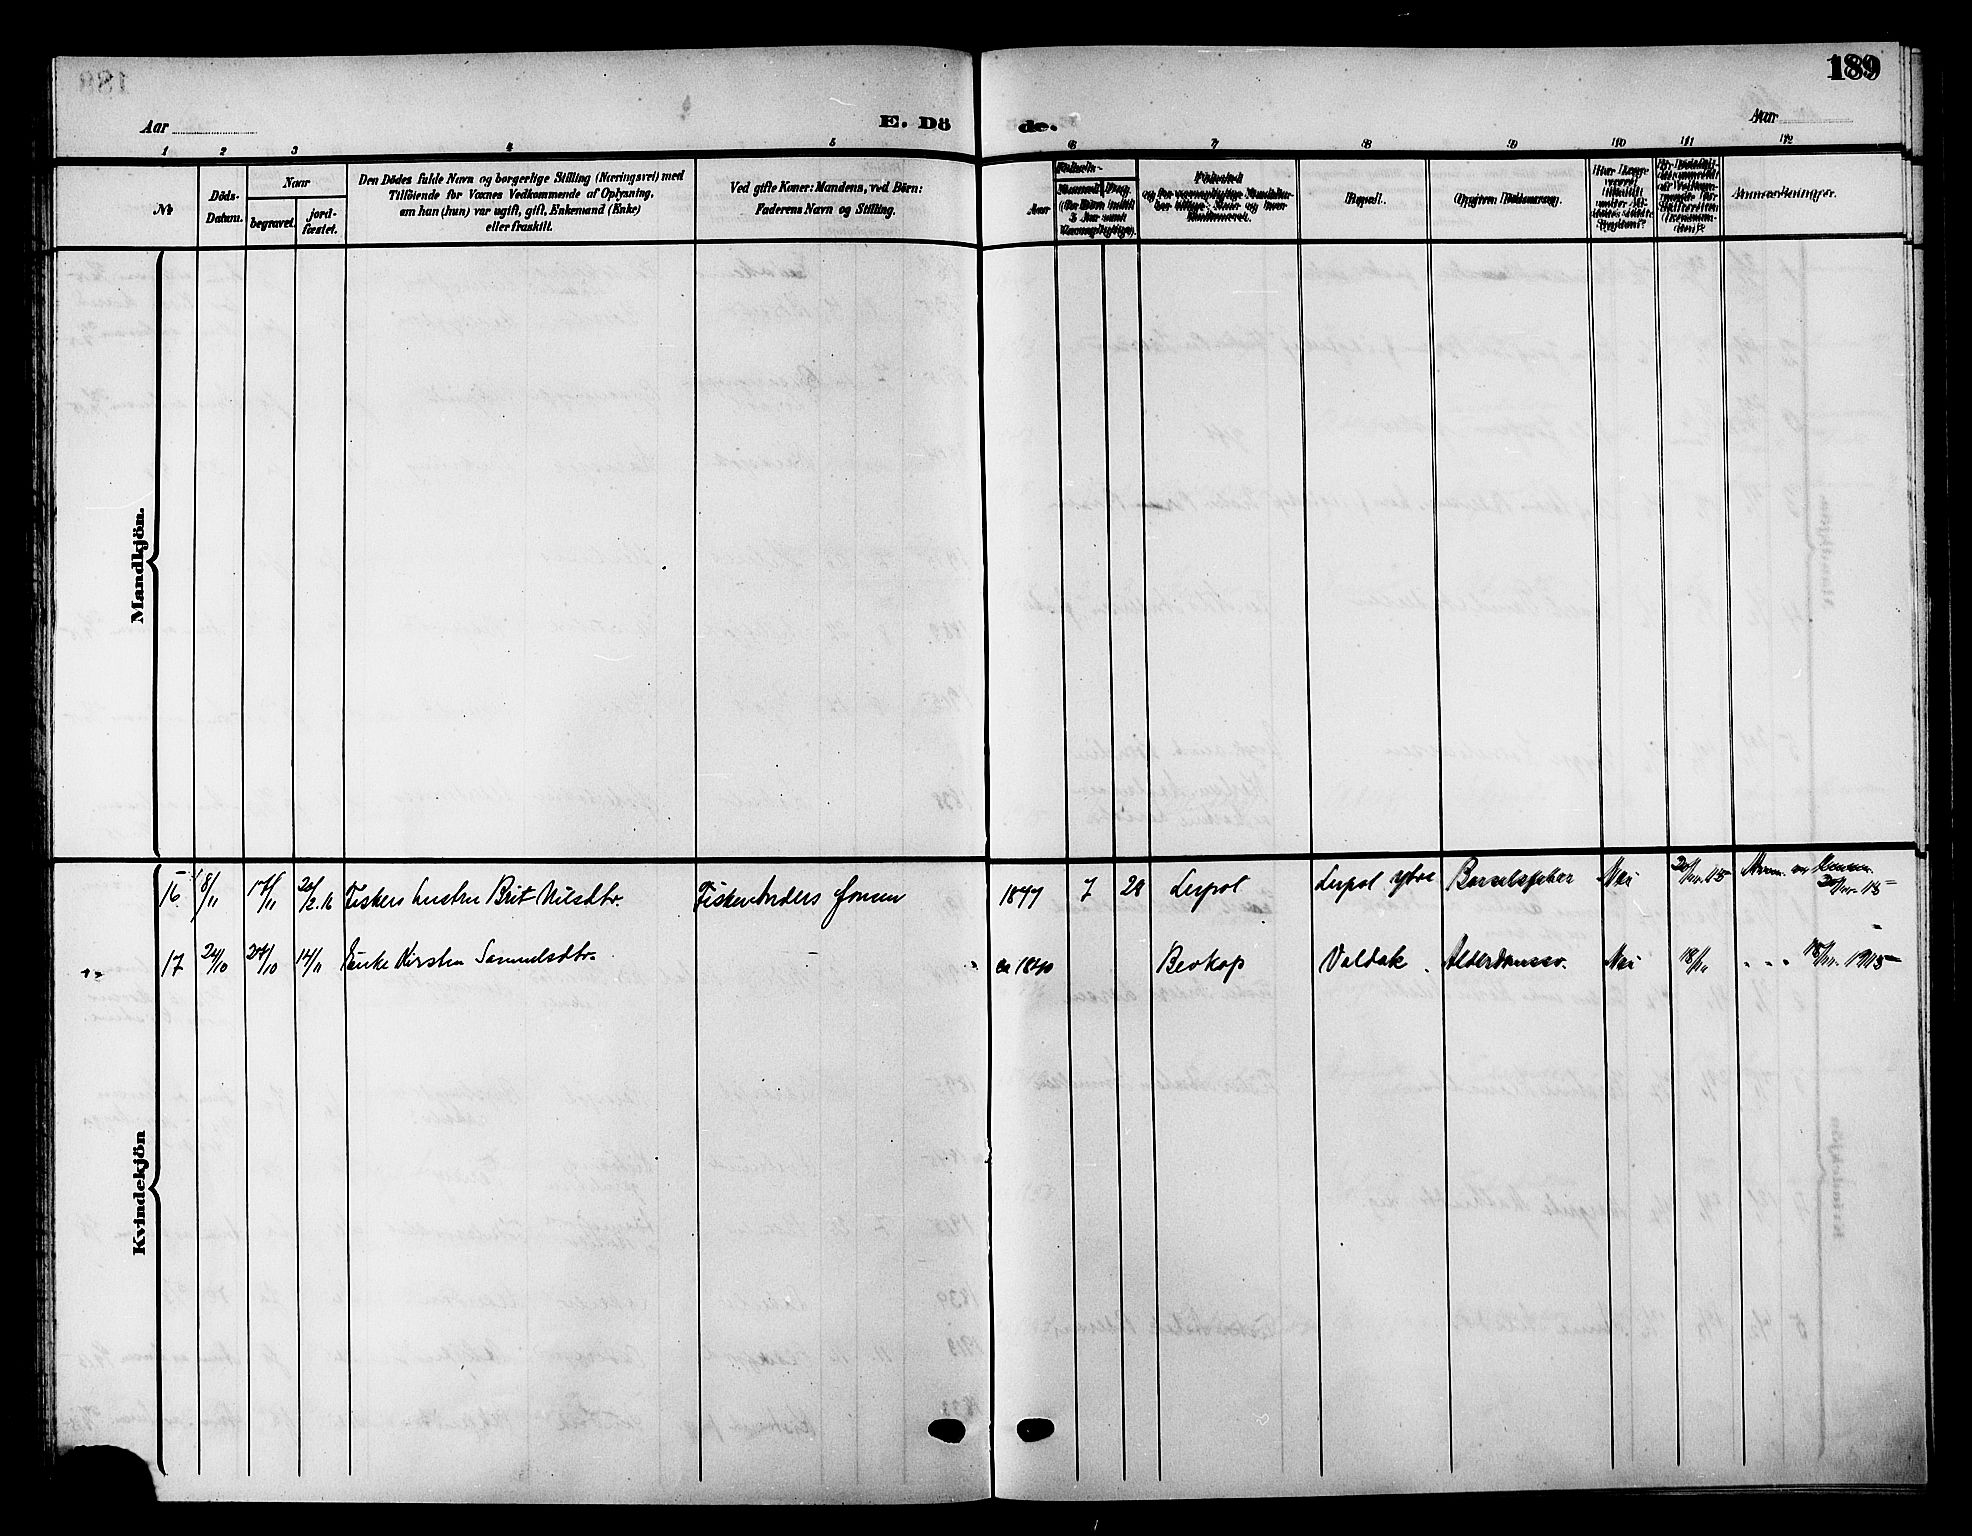 189
Aar
E. Dö
de.
Aar
1 2 3 4 5 6 7 8 9 10 11 12
No
Döds-
Datum.
Naar
begravet.
jord-
fæstet.
Den Dödes fulde Navn og borgerlige Stilling (Næringsvei) med
Tilföiende for Voxnes Vedkommende af Oplysning,
om han (hun) var ugift, gift, Enkemand (Enke)
eller fraskilt.
Ved gifte Koner: Mandens, ved Börn:
Faderens Navn og Stilling.
Födsels-
Aar
Maaned
Dag
(for Börn indtil
5 Aar samt
Værnepligtige).
Födested
Bopæl.
Opgiven Dödsaarsag.
Anmærkninger.
Mandkjön.
16. 8/11 17/11 20/2.16 Fiskers hustru Brit Nilsdtr. Fisker Anders Jonsen 1877 7 29 Leipol Leipol ytre Barselsfeber Nei 20/11.15
17 24/10 27/10 14/11 Enke Kirsten Samuelsdtr. ca 1840 Bevkop Valdak. Alderdomssv. Nei 18/11 " " " 18/11. 1915
Kvindekjön